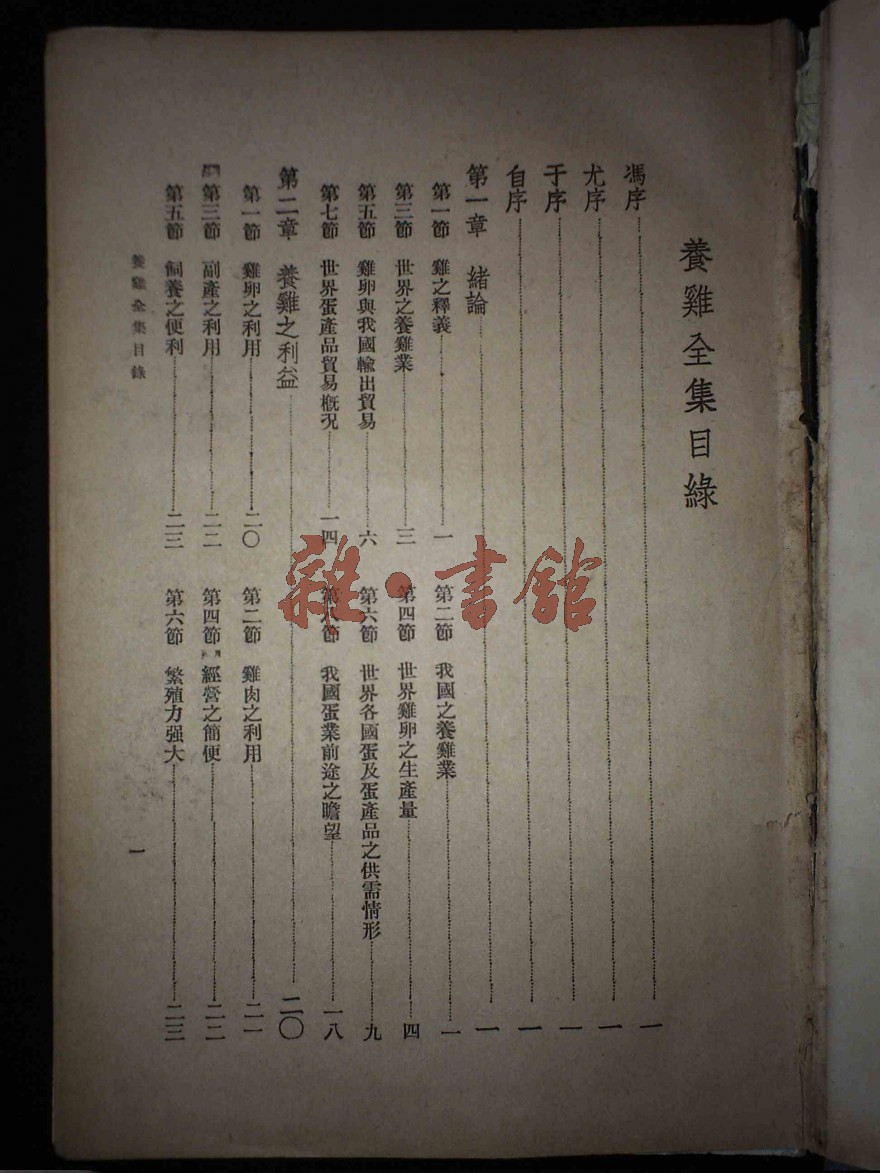 養雞全集目綠
馮序 一
尤序 一
于序 一
自序 一
第一章 緒論 一
第一節 雞之釋義 一 第二節 我國之養雞業 一
第三節 世界之養雞業 三 第四節 世界雞卵之生產量 四
第五節 雞卵與我國輸出貿易 六 第六節 世界各國蛋及蛋產品之供需情形 九
第七節 世界蛋產品貿易概況 一四 第八節 我國蛋業前途之瞻望 一八
第二章 養雞之利益 二〇
第一節 雞卵之利用 二〇 第二節 雞肉之利用 二一
第三節 副產之利用 二二 第四節 經營之簡便 二二
第五節 飼養之便利 二三 第六節 繁殖力强大 二三
養雞全集目錄
一
雜·書館